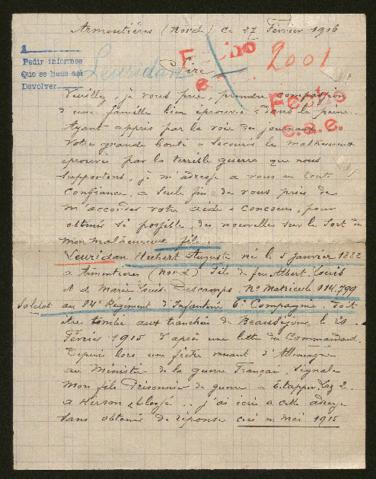 Armentières (Nord) ce 27 Février 1916
A
Pedir informes
Que se haga así
Devolver
Leuridan
Fecho
e
2001
Sire
Veuillez, je vous prie, prendre compassion
d'une famille bien éprouvée dans la peine.
Ayant appris par la voie du journal
votre grande bonté à secourir les malheureux
éprouvés par la terrible guerre que nous
supportons, je m'adresse à vous en toute
confiance, à seule fin de vous priés de
m'accorder votre aide & concours, pour
obtenir si possible, des nouvelles sur le sort de
mon malheureux fils
Fecho
e.a.e.
Leuridan Hubert Auguste né le 5 janvier 1882
à Armentières (Nord) fils de feu Albert Louis
& de Marie Louise Descamps, No Matricule
Soldat au Régiment d'Infanterie 6e Compagnie. Doit
être tombé aux tranchées de Beauséjour le
Février 1915 d'après une lettre du Commandant.
Depuis lors, une fiche venant d'Allemagne
au Ministère de la guerre Français, signale
mon fils Prisonnier de guerre à
à Hirson & blessé. j'ai écris à cette adresse
sans obtenir de réponse ceci en Mai 1915